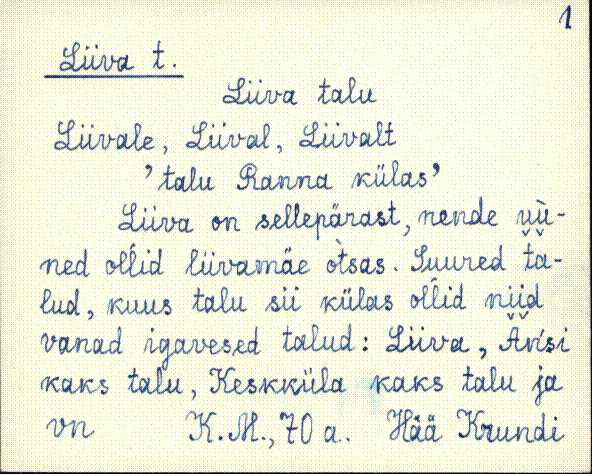 1
Liiva t.
Liiva talu
Liivale, Liival, Liivalt
'talu Ranna külas'
Liiva on sellepärast, nende
ned ol'l'id liivamäe òtsas. Suured ta-
lud, kuus talu sii külas ol'l'id niid
vanad igavesed talud: Liiva,
kaks talu, Keskküla kaks talu ja
vn K.M., 70 a. Hää Krundi